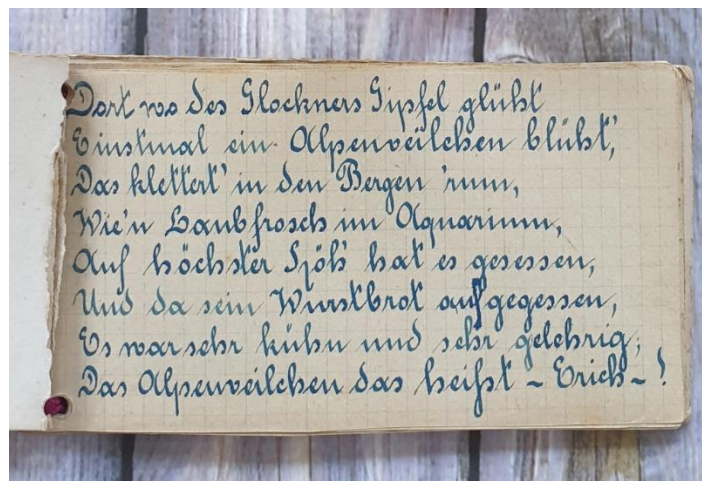 Dort wo des Glockners Gipfel glüht
Einstmal ein Alpenveilchen blüht',
Das klettert' in den Bergen 'rum,
Wie'n Laubfrosch im Aquarium,
Auf höchster Höh' hat es gesessen,
Und da sein Wurstbrot aufgegessen,
Es war sehr kühn und sehr gelehrig,
Das Alpenveilchen das heißt - Erich - !